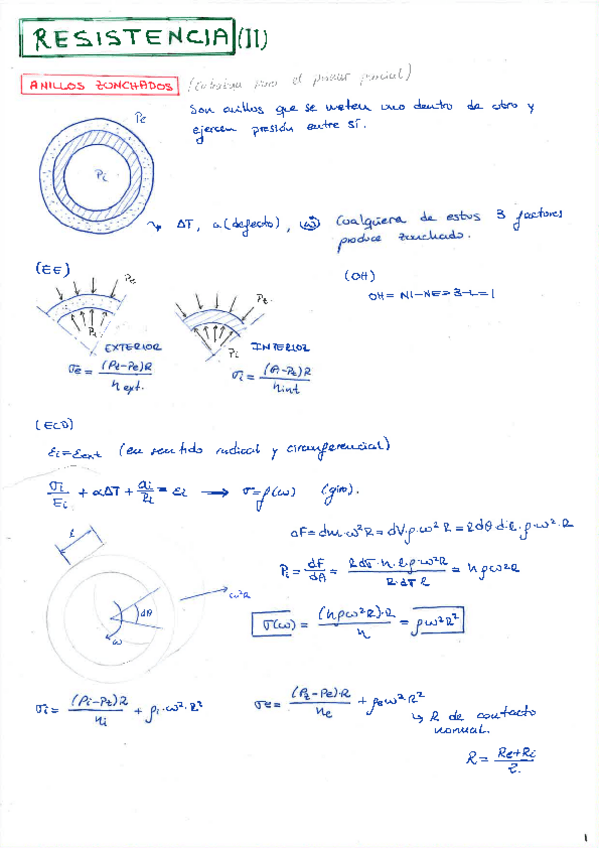 RESISTENCIA (II)
ANILLOS ZUNCHADOS (para el parcial)
Son anillos que se meten uno dentro de otro y
ejercen presión entre sí.
Pe
Pi
ΔT, a (defecto), ω Cualquiera de estos 3 factores
produce zunchado.
(EE)
(OH)
OH = NI-NE = 3-2 = 1
Pe
Pz
Pi
Pi
EXTERIOR
INTERIOR
σe = (Pz-Pe)R / h ext.
σi = (Pi-Pz)R / h int
(ECD)
εi = εext (en sentido radical y circunferencial)
σi/Ei + αΔT + ai/Ri = εi → σ = f(ω) (giro).
dF = dm·ω²R = dV·ρ·ω²R
l
Pi = dF/dA = = hρω²R
ω²R
dθ
ω
σ(ω) = (hρω²R)·R / h = ρω²R²
σi = (Pi-Pz)R / hi + ρi·ω²·R²
σe = (Pz-Pe)·R / he + ρeω²R²
↳ R de contacto
normal.
R = Re+Ri / 2.
1